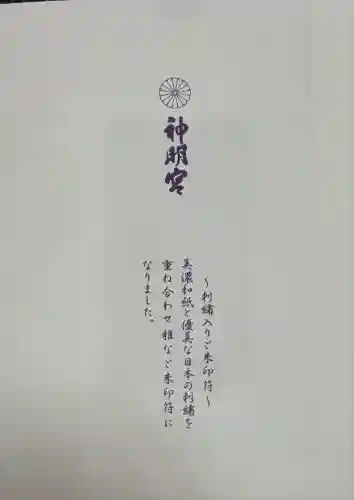 神明宮
～刺繍入りご朱印符～
美濃和紙と優美な日本の刺繍を
重ね合わせ雅なご朱印符に
なりました。